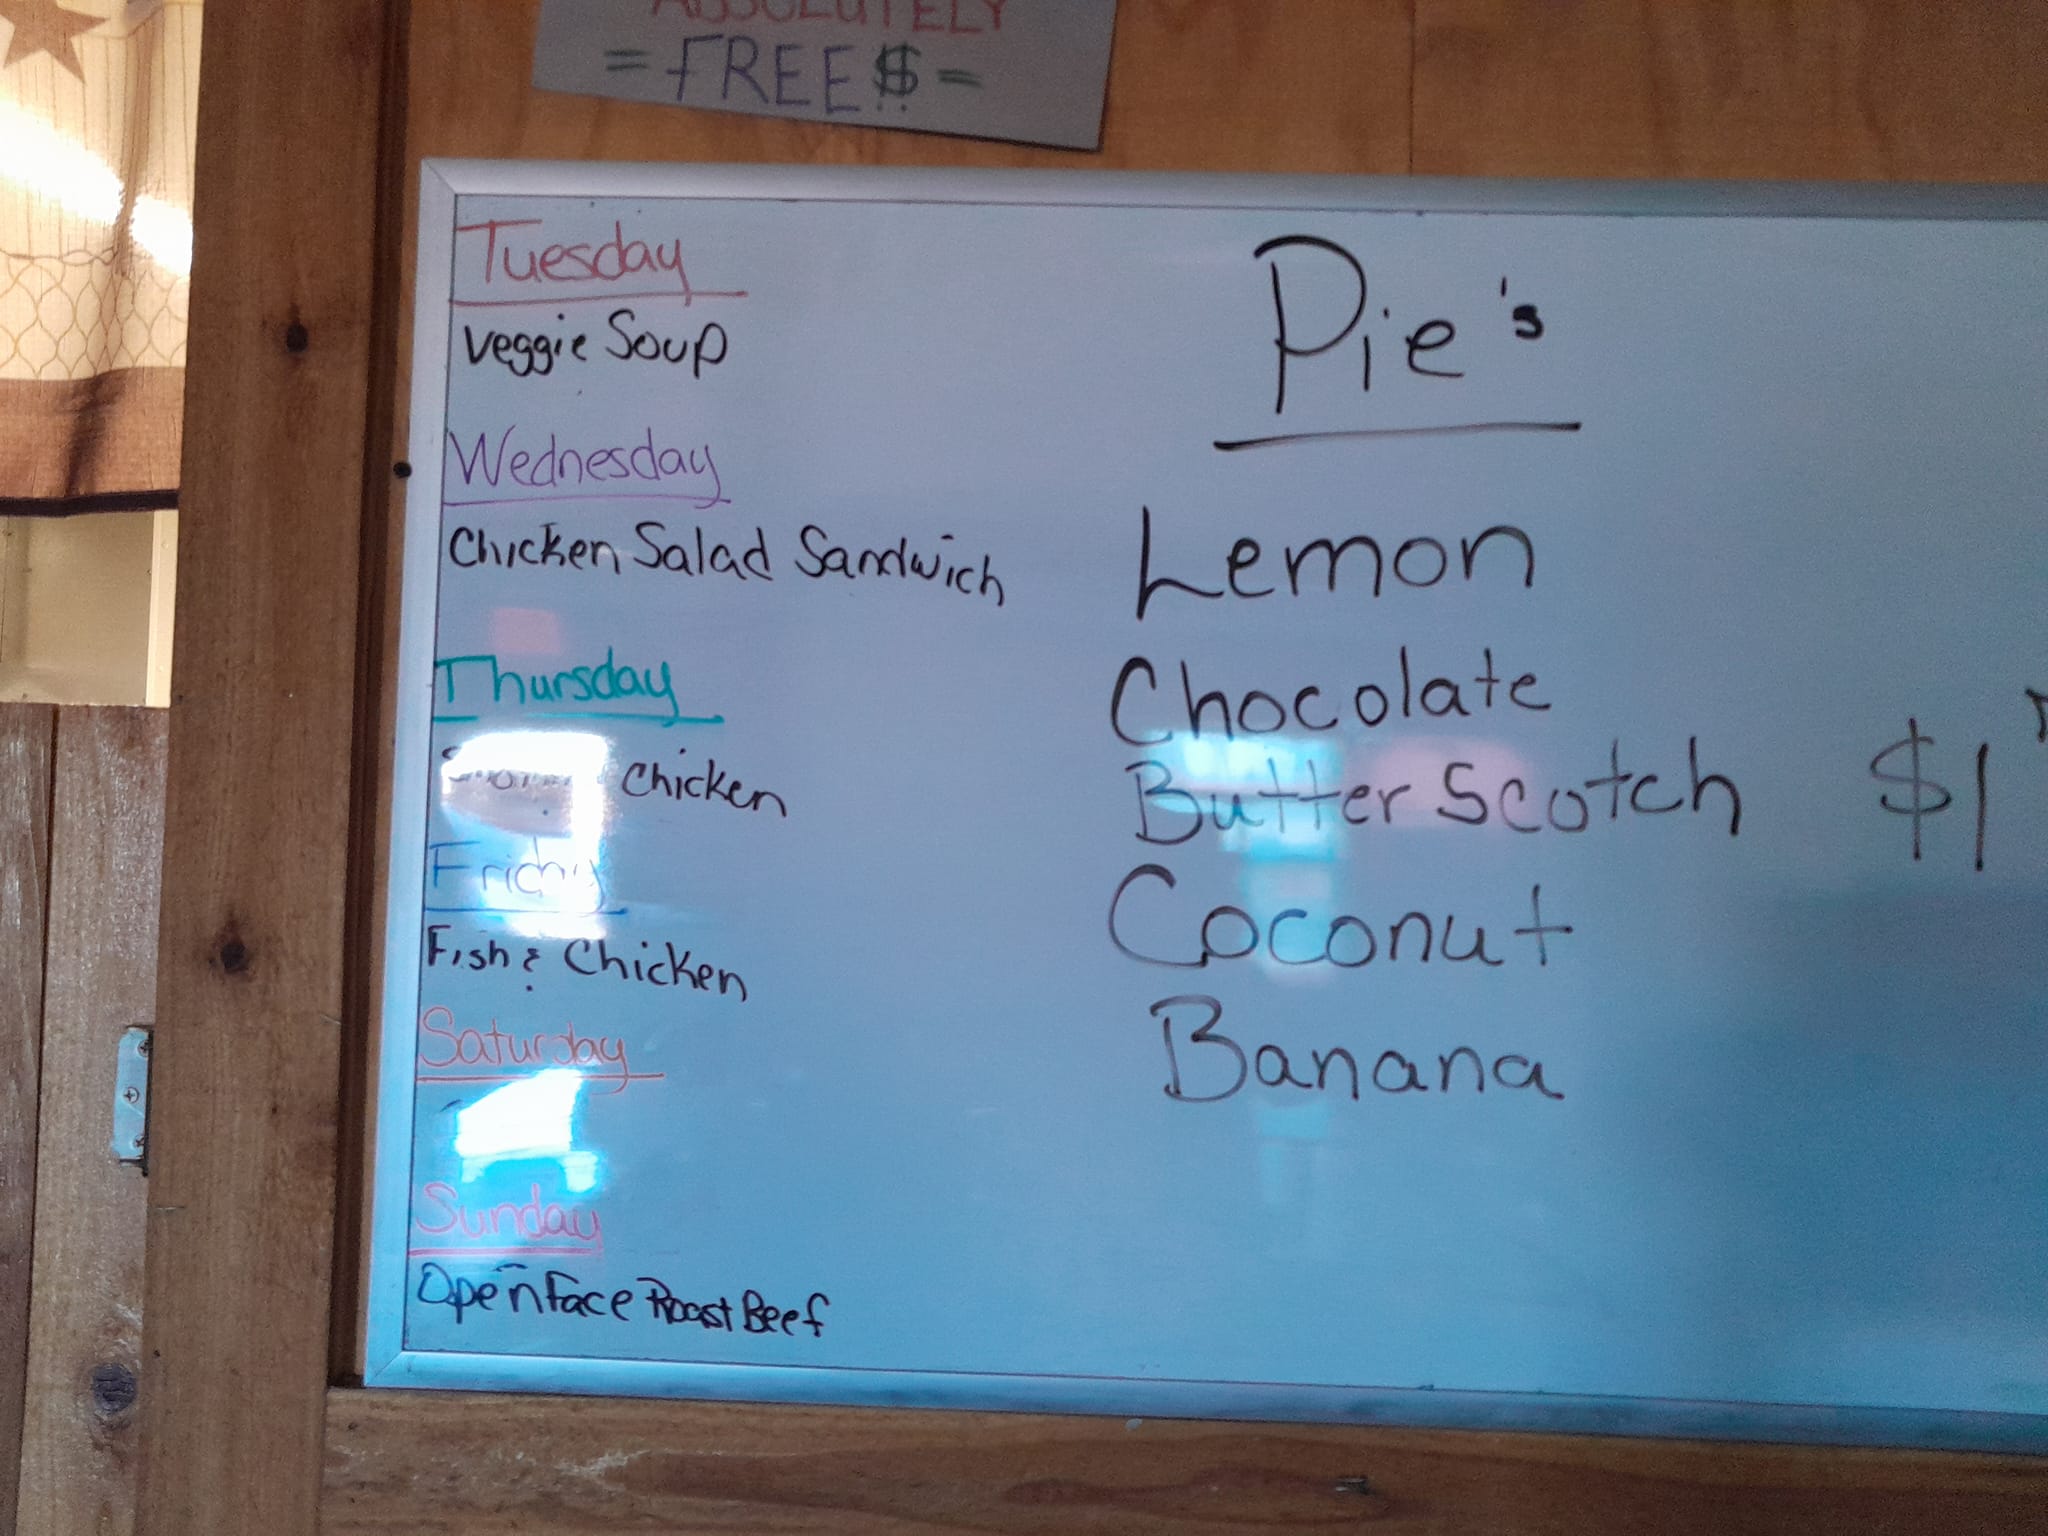 ABSOLUTELY
= FREE $ =
Tuesday
Veggie Soup
Wednesday
Chicken Salad Sandwich
Thursday
Chicken
Friday
Fish & Chicken
Saturday
Sunday
Open Face Roast Beef
Pie's
Lemon
Chocolate
Butter Scotch $1
Coconut
Banana